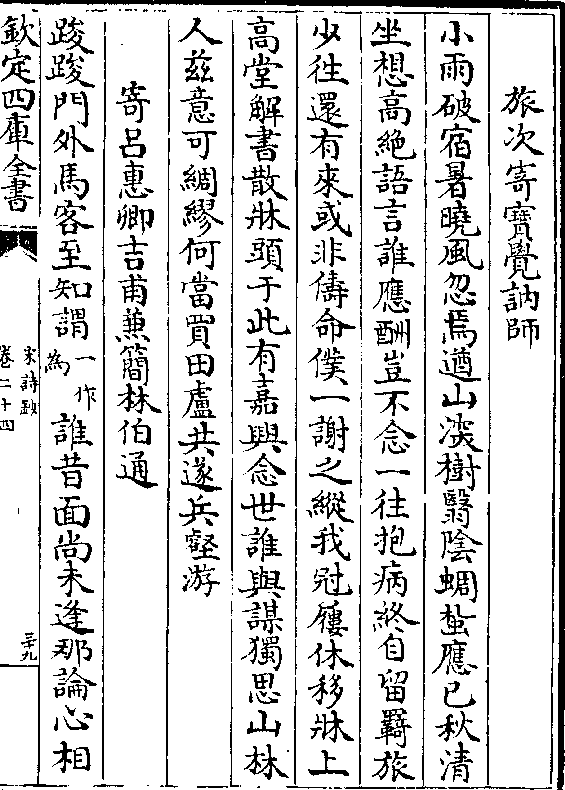 旅次寄寶覺訥師
小雨破宿暑曉風忽焉遒山淡樹翳陰蜩蜇應已秋清
坐想高絶語言誰應酬豈不念一往抱病終自留羇旅
少徃還有來或非儔命僕一謝之縱我冠屨休移牀上
高堂解書散牀頭于此有嘉興念世誰與謀獨思山林
人兹意可綢繆何當買田廬共遂兵壑游
寄吕惠卿吉甫蕪簡林伯通
踆踆門外馬客至知謂一作為誰昔面尚未逢那論心相
欽定四庫全書
宋詩鈔
卷二十四
三十九